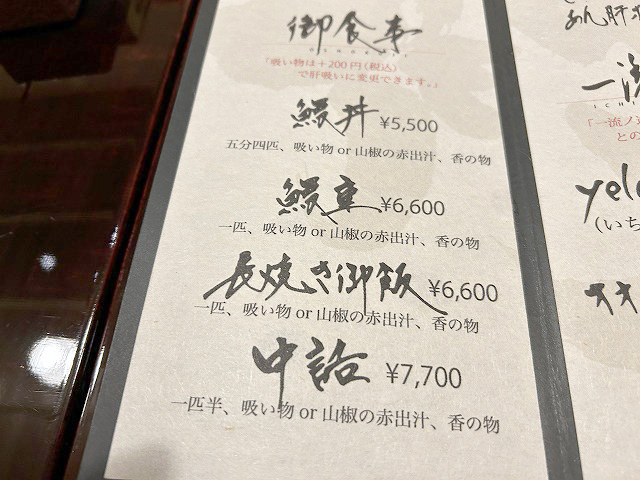 御食事
「吸い物は＋200円（税込）
で肝吸いに変更できます。」
鰻丼 ¥5,500
五分四匹、吸い物 or 山椒の赤出汁、香の物
鰻重 ¥6,600
一匹、吸い物 or 山椒の赤出汁、香の物
長焼き御飯 ¥6,600
一匹、吸い物 or 山椒の赤出汁、香の物
中詰 ¥7,700
一匹半、吸い物 or 山椒の赤出汁、香の物
あん肝
一流
ICHI
「一流ノ
との
yel
（いち
オオ